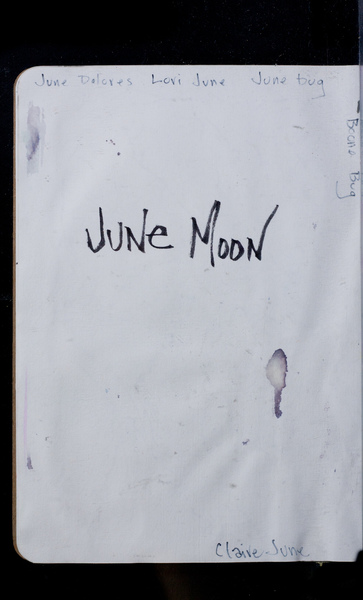 June Dolores Lori June June bug
Boone Bug
JUNE MOON
Claire June